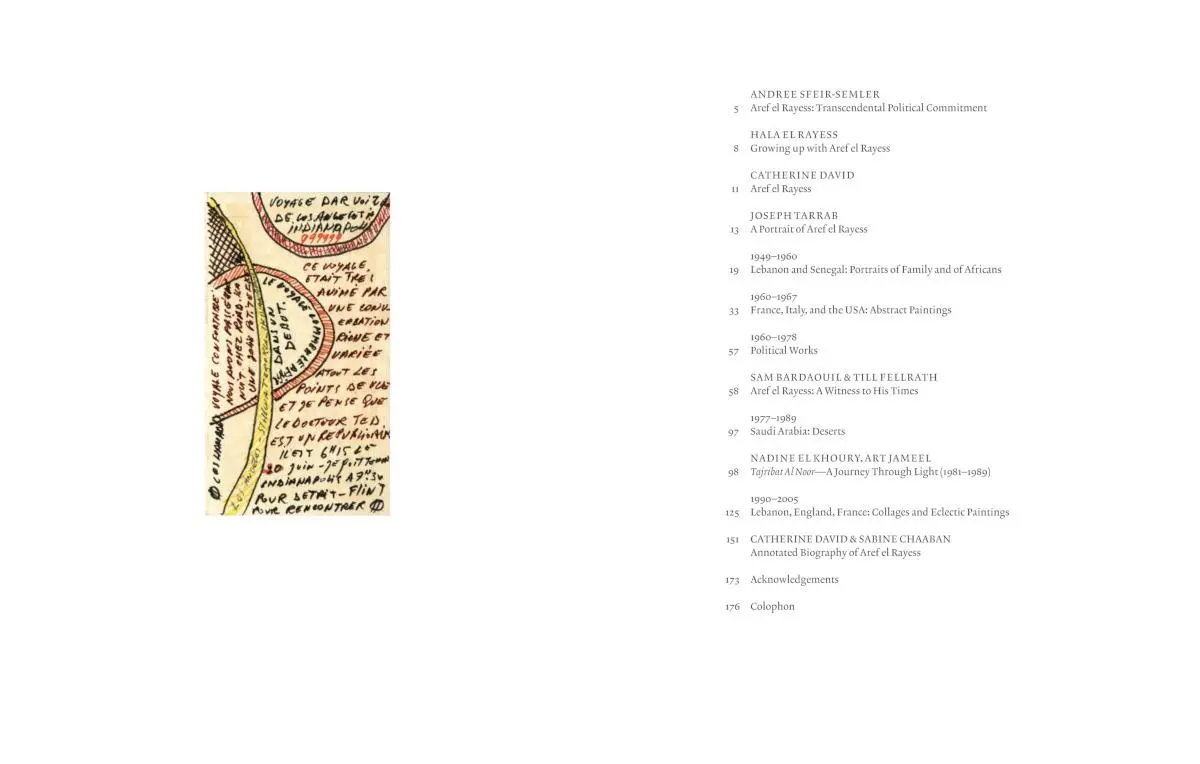 VOYAGE PAR VOIT
DE LOS ANGELES À
INDIANAPOLIS
CE VOYAGE,
ETAIT TRES
ANIMÉ PAR
UNE CONV
ERSATION
RICHE ET
VARIÉE
ATOUT LES
POINTS DE VUE
ET JE PENSE QUE
LE DOCTEUR TED
EST UN REPUBLICAIN
IL EST 6H15 LE
20 JUIN -
INDIANAPOLIS A 7H30
POUR DETROIT - FLINT
POUR RENCONTRER
LE VOYAGE COMMENCE
DANS UN
DEBUT.
ANDREE SFEIR-SEMLER
5 Aref el Rayess: Transcendental Political Commitment
HALA EL RAYESS
8 Growing up with Aref el Rayess
CATHERINE DAVID
11 Aref el Rayess
JOSEPH TARRAB
13 A Portrait of Aref el Rayess
1949–1960
19 Lebanon and Senegal: Portraits of Family and of Africans
1960–1967
33 France, Italy, and the USA: Abstract Paintings
1960–1978
57 Political Works
SAM BARDAOUIL & TILL FELLRATH
58 Aref el Rayess: A Witness to His Times
1977–1989
97 Saudi Arabia: Deserts
NADINE EL KHOURY, ART JAMEEL
98 Tajribat Al Noor—A Journey Through Light (1981–1989)
1990–2005
125 Lebanon, England, France: Collages and Eclectic Paintings
151 CATHERINE DAVID & SABINE CHAABAN
Annotated Biography of Aref el Rayess
173 Acknowledgements
176 Colophon